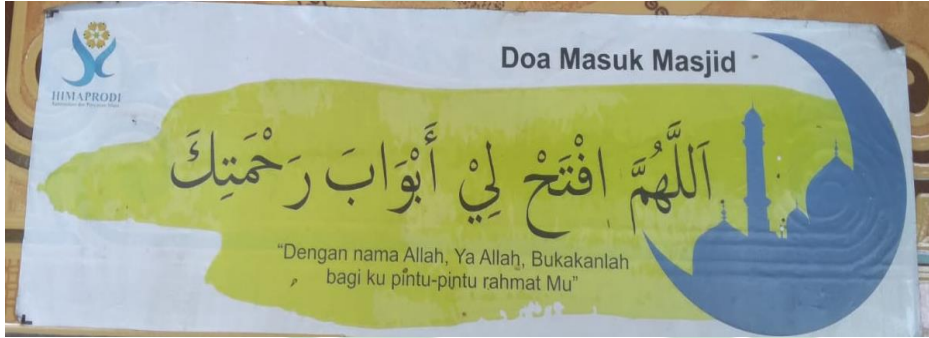 HIMAPRODI
Doa Masuk Masjid
اَللَّهُمَّ افْتَحْ لِيْ أَبْوَابَ رَحْمَتِكَ
“Dengan nama Allah, Ya Allah, Bukakanlah
bagi ku pintu-pintu rahmat Mu”